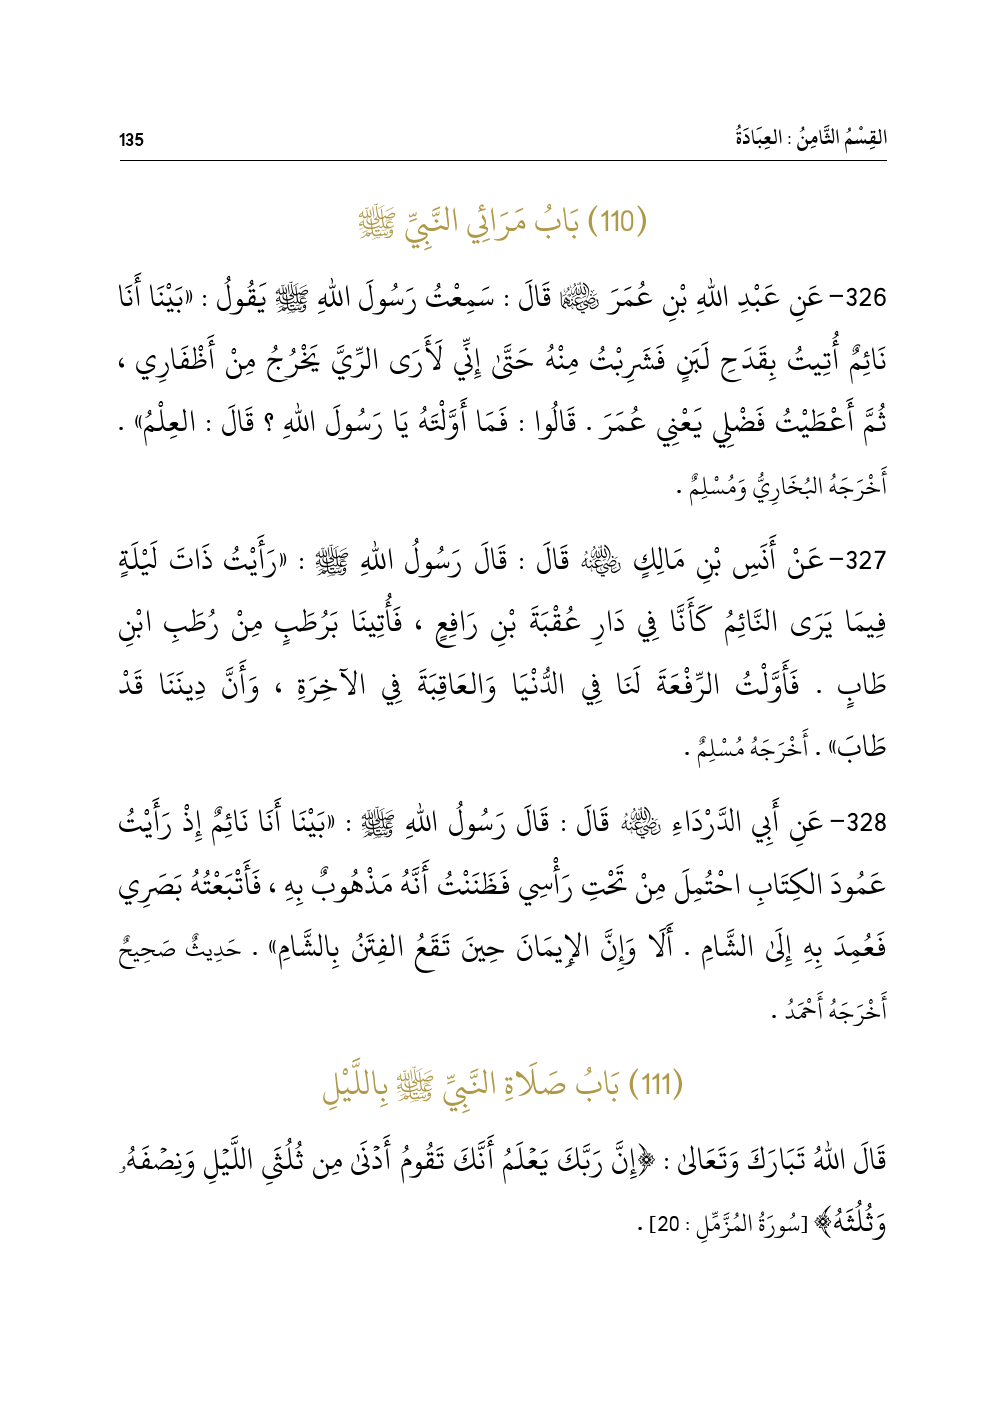 القِسْمُ الثَّامِنُ : العِبَادَةُ 135
(110) بَابُ مَرَائِي النَّبِيِّ ﷺ
326– عَنِ عَبْدِ اللهِ بْنِ عُمَرَ رضي الله عنهما قَالَ : سَمِعْتُ رَسُولَ اللهِ ﷺ يَقُولُ : «بَيْنَا أَنَا
نَائِمٌ أُتِيتُ بِقَدَحِ لَبَنٍ فَشَرِبْتُ مِنْهُ حَتَّىٰ إِنِّي لَأَرَى الرِّيَّ يَخْرُجُ مِنْ أَظْفَارِي ،
ثُمَّ أَعْطَيْتُ فَضْلِي يَعْنِي عُمَرَ . قَالُوا : فَمَا أَوَّلْتَهُ يَا رَسُولَ اللهِ ؟ قَالَ : العِلْمُ» .
أَخْرَجَهُ البُخَارِيُّ وَمُسْلِمٌ .
327– عَنْ أَنَسِ بْنِ مَالِكٍ رضي الله عنه قَالَ : قَالَ رَسُولُ اللهِ ﷺ : «رَأَيْتُ ذَاتَ لَيْلَةٍ
فِيمَا يَرَى النَّائِمُ كَأَنَّا فِي دَارِ عُقْبَةَ بْنِ رَافِعٍ ، فَأُتِينَا بَرُطَبٍ مِنْ رُطَبِ ابْنِ
طَابٍ . فَأَوَّلْتُ الرِّفْعَةَ لَنَا فِي الدُّنْيَا وَالعَاقِبَةَ فِي الآخِرَةِ ، وَأَنَّ دِينَنَا قَدْ
طَابَ» . أَخْرَجَهُ مُسْلِمٌ .
328– عَنِ أَبِي الدَّرْدَاءِ رضي الله عنه قَالَ : قَالَ رَسُولُ اللهِ ﷺ : «بَيْنَا أَنَا نَائِمٌ إِذْ رَأَيْتُ
عَمُودَ الكِتَابِ احْتُمِلَ مِنْ تَحْتِ رَأْسِي فَظَنَنْتُ أَنَّهُ مَذْهُوبٌ بِهِ ، فَأَتْبَعْتُهُ بَصَرِي
فَعُمِدَ بِهِ إِلَىٰ الشَّامِ . أَلَا وَإِنَّ الإِيمَانَ حِينَ تَقَعُ الفِتَنُ بِالشَّامِ» . حَدِيثٌ صَحِيحٌ
أَخْرَجَهُ أَحْمَدُ .
(111) بَابُ صَلَاةِ النَّبِيِّ ﷺ بِاللَّيْلِ
قَالَ اللهُ تَبَارَكَ وَتَعَالىٰ : ﴿إِنَّ رَبَّكَ يَعۡلَمُ أَنَّكَ تَقُومُ أَدۡنَىٰ مِن ثُلُثَيِ اللَّيۡلِ وَنِصۡفَهُۥ
وَثُلُثَهُ﴾ [سُورَةُ المُزَّمِّلِ : 20] .